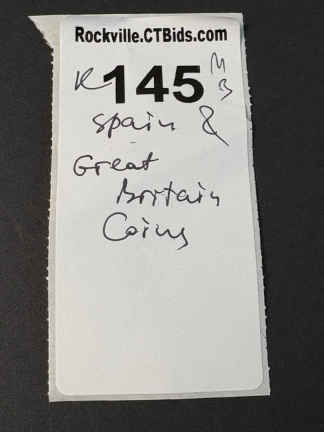 Rockville.CTBids.com
K 145 MB
Spain &
Great
Britain
Coins